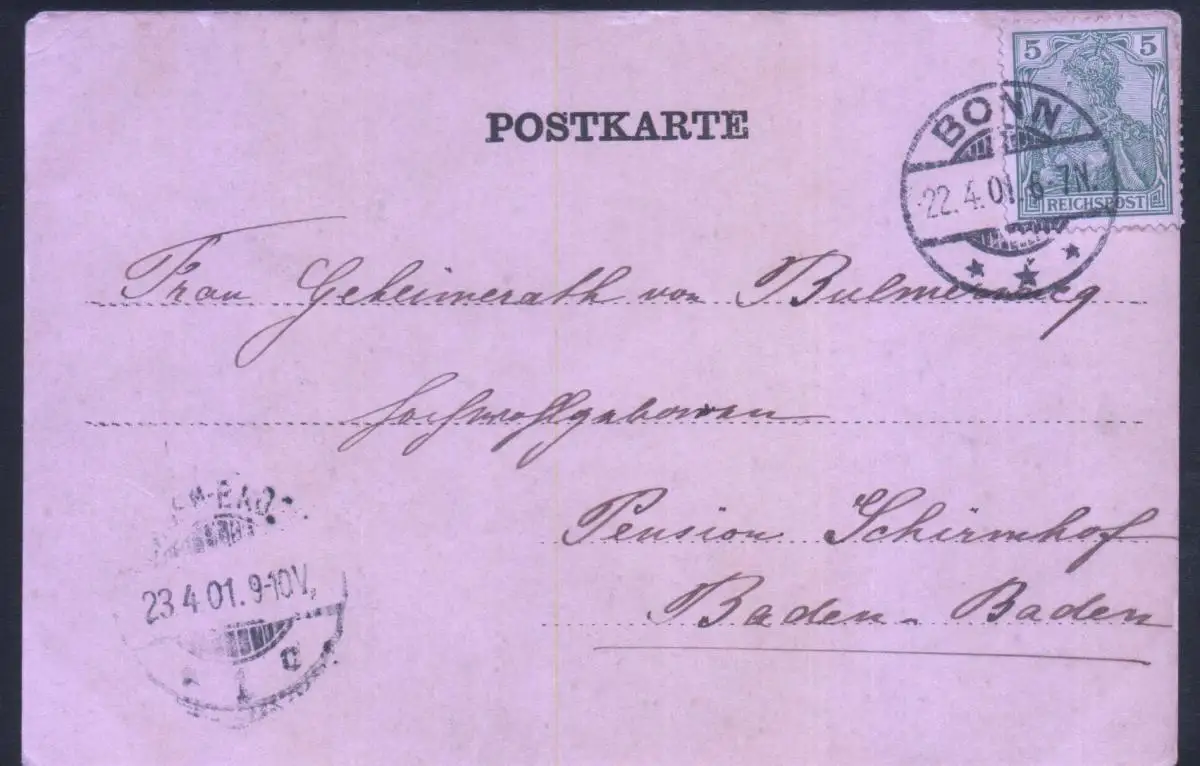 5 5
REICHSPOST
BONN
22. 4. 01. 6-7N.
POSTKARTE
Frau Geheimerath von Bulmerincq
Hochwohlgeboren
Pension Schirmhof
Baden-Baden
23 4 01. 9-10V.